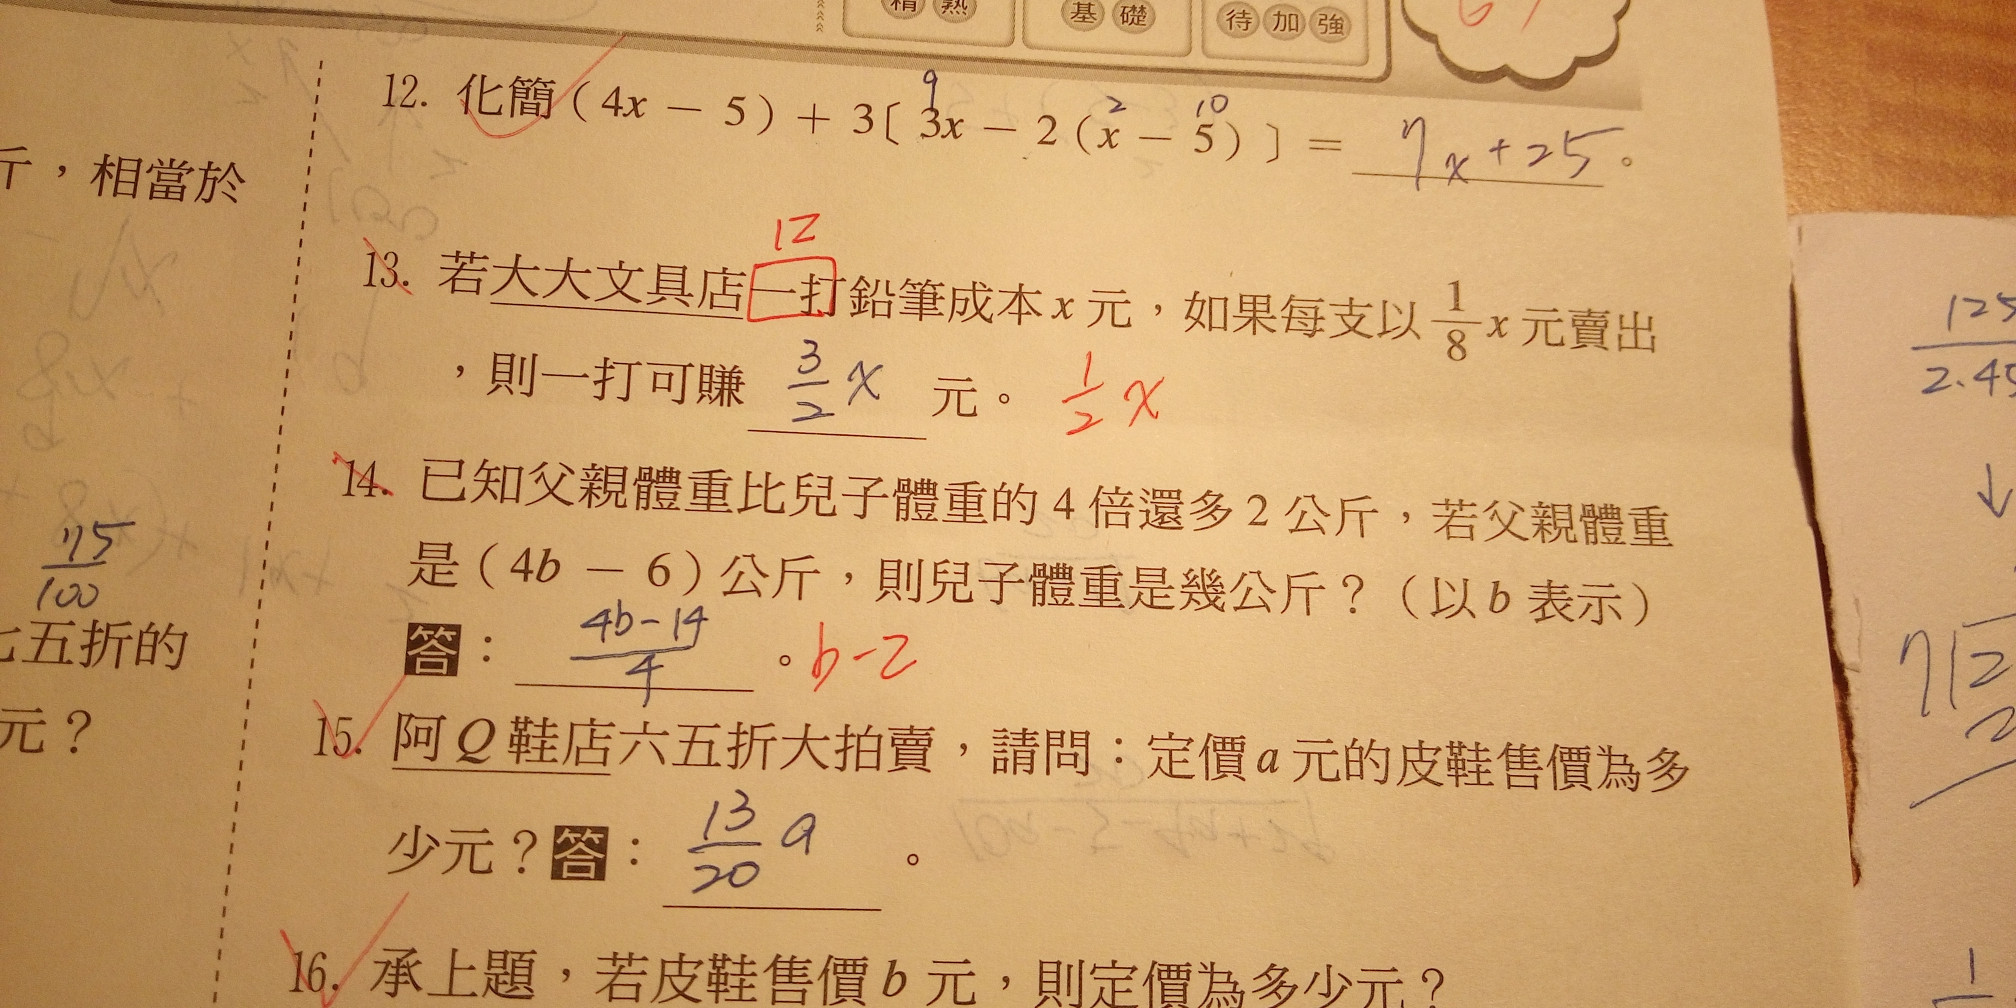 精熟
基礎
待加強
12. 化簡(4x－5)＋3〔3x－2(x－5)〕＝ 7x+25。
9
2
10
斤，相當於
12
13. 若大大文具店一打鉛筆成本x元，如果每支以1/8x元賣出
，則一打可賺 3/2 x 元。 1/2 x
14. 已知父親體重比兒子體重的4倍還多2公斤，若父親體重
是(4b－6)公斤，則兒子體重是幾公斤？(以b表示)
答： 4b-14/4 。b-2
75/100
五折的
元？
15. 阿Q鞋店六五折大拍賣，請問：定價a元的皮鞋售價為多
少元？答： 13/20 a 。
16. 承上題，若皮鞋售價b元，則定價為多少元？
125
2.45
↓
7
2
2
1